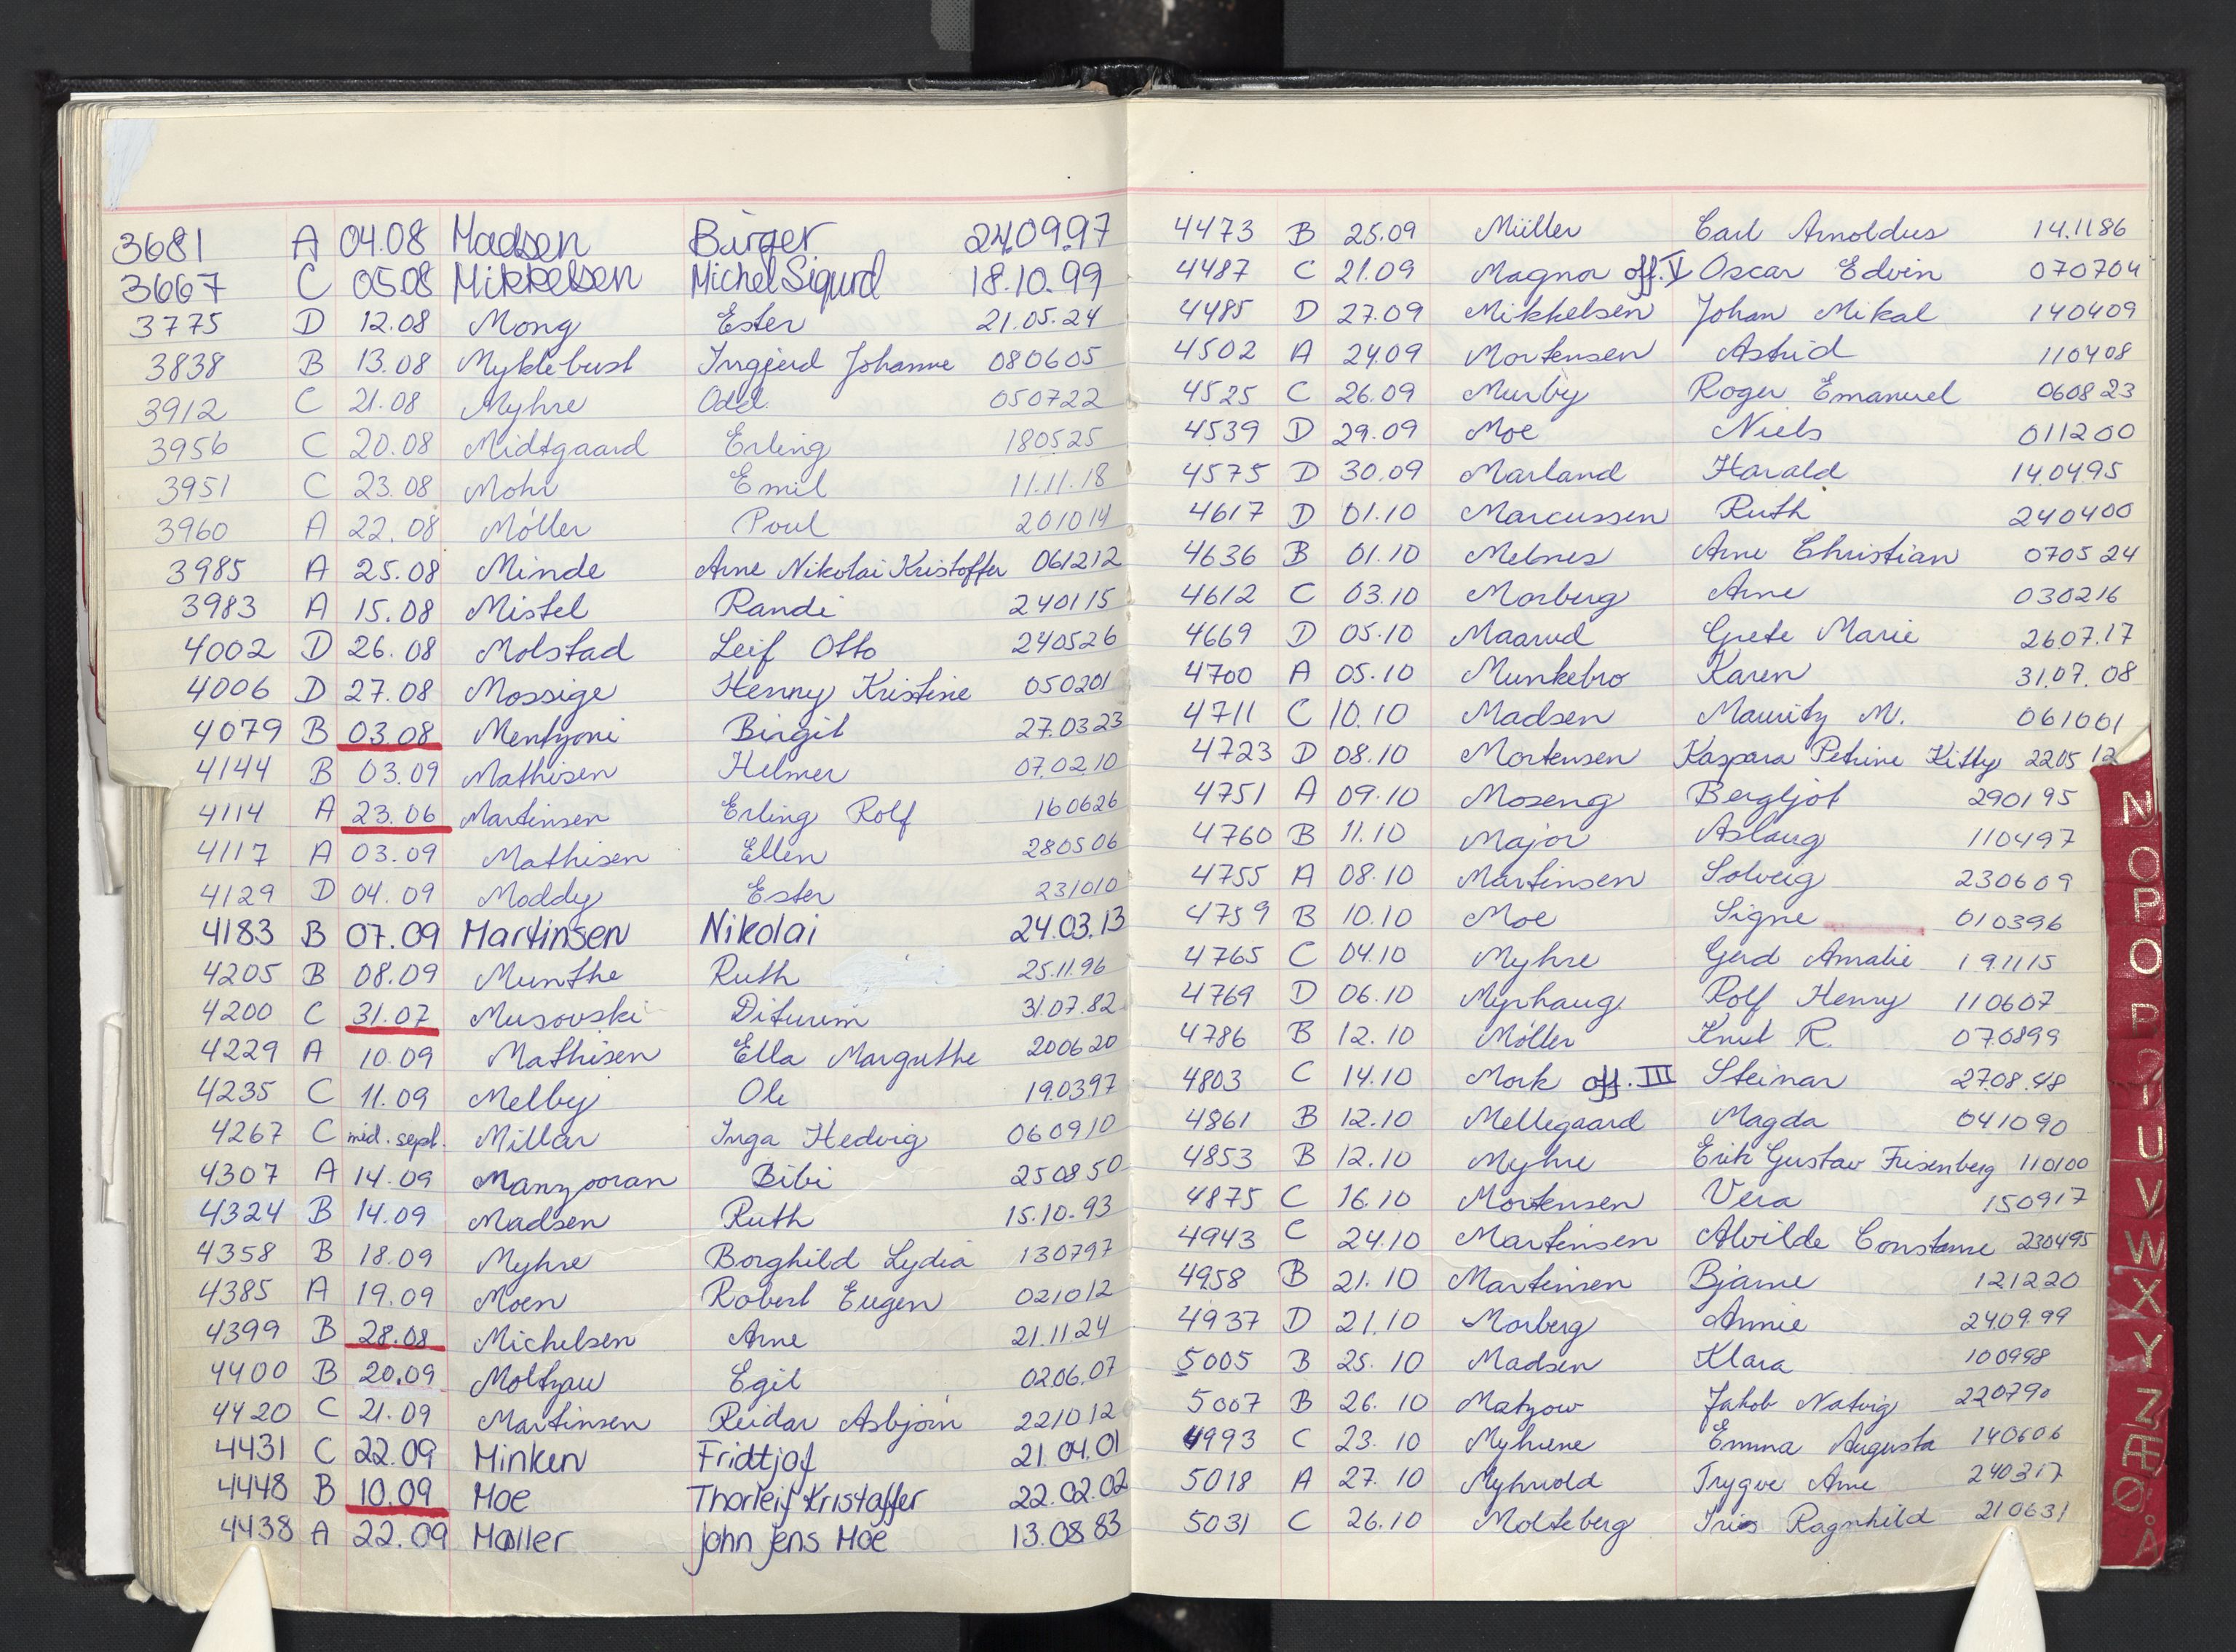 3681 A 04.08 Madsen Birger 24.09.97
3667 C 05.08 Mikkelsen Michel Sigurd 18.10.99
3775 D 12.08 Mong Ester 21.05.24
3838 B 13.08 Myklebust Ingjerd Johanne 080605
3912 C 21.08 Myhre Odd 050722
3956 C 20.08 Midtgaard Erling 180525
3951 C 23.08 Mohr Emil 11.11.18
3960 A 22.08 Möller Poul 201014
3985 A 25.08 Minde Arne Nikolai Kristoffer 061212
3983 A 15.08 Mistel Randi 240115
4002 D 26.08 Molstad Leif Otto 240526
4006 D 27.08 Mossige Henny Kristine 050201
4079 B 03.08 Mentzoni Birgit 27.03.23
4144 B 03.09 Mathisen Helmer 07.02.10
4114 A 23.06 Martinsen Erling Rolf 160626
4117 A 03.09 Mathisen Ellen 280506
4129 D 04.09 Moddy Ester 231010
4183 B 07.09 Martinsen Nikolai 24.03.13
4205 B 08.09 Munthe Ruth 25.11.96
4200 C 31.07 Musovski Diturim 31.07.82
4229 A 10.09 Mathisen Ella Margrethe 200620
4235 C 11.09 Melby Ole 19.0397
4267 C mid. sept. Millar Inga Hedvig 060910
4307 A 14.09 Manzooran Bibi 250850
4324 B 14.09 Madsen Ruth 15.10.93
4358 B 18.09 Myhre Borghild Lydia 130797
4385 A 19.09 Moen Robert Eugen 021012
4399 B 28.08 Michelsen Arne 21.11.24
4400 B 20.09 Moltzau Egil 02.06.07
4420 C 21.09 Martinsen Reidar Asbjørn 221012
4431 C 22.09 Minken Fridtjof 21.04.01
4448 B 10.09 Moe Thorleif Kristaffer 22.02.02
4438 A 22.09 Møller John Jens Moe 13.08.83
4473 B 25.09 Müller Carl Arnoldus 14.1186
4487 C 21.09 Magnor off. V Oscar Edvin 070704
4485 D 27.09 Mikkelsen Johan Mikal 140409
4502 A 24.09 Mortensen Astrid 110408
4525 C 26.09 Murby Roger Emanuel 060823
4539 D 29.09 Moe Niels 011200
4575 D 30.09 Marland Harald 14.04.95
4617 D 01.10 Marcussen Ruth 240400
4636 B 01.10 Melnes Arne Christian 070524
4612 C 03.10 Morberg Arne 030216
4669 D 05.10 Maarud Grete Marie 2607.17
4700 A 05.10 Munkebro Karen 31.07.08
4711 C 10.10 Madsen Mauritz M. 061001
4723 D 08.10 Mortensen Kaspara Petrine Kitty 220512
4751 A 09.10 Moseng Bergljot 290195
4760 B 11.10 Major Aslaug 110497
4755 A 08.10 Martinsen Solveig 230609
4759 B 10.10 Moe Signe 010396
4765 C 04.10 Myhre Gerd Amalie 191115
4769 D 06.10 Myrhaug Rolf Henry 110607
4786 B 12.10 Møller Knut R. 070899
4803 C 14.10 Mork off. III Steinar 27.08.48
4861 B 12.10 Mellegaard Magda 041090
4853 B 12.10 Myhre Erik Gustav Frisenberg 110100
4875 C 16.10 Mortensen Vera 150917
4943 C 24.10 Martinsen Alvilde Constanse 230495
4958 B 21.10 Martinsen Bjarne 121220
4937 D 21.10 Morberg Annie 2409.99
5005 B 25.10 Madsen Klara 100998
5007 B 26.10 Matzow Jakob Natvig 220790
4993 C 23.10 Myhrene Emma Augusta 140606
5018 A 27.10 Myhrvold Trygve Arne 240317
5031 C 26.10 Molteberg Iris Ragnhild 210631
N
O
P
O
P
U
V
W
X
Y
Z
Æ
Ø
Å